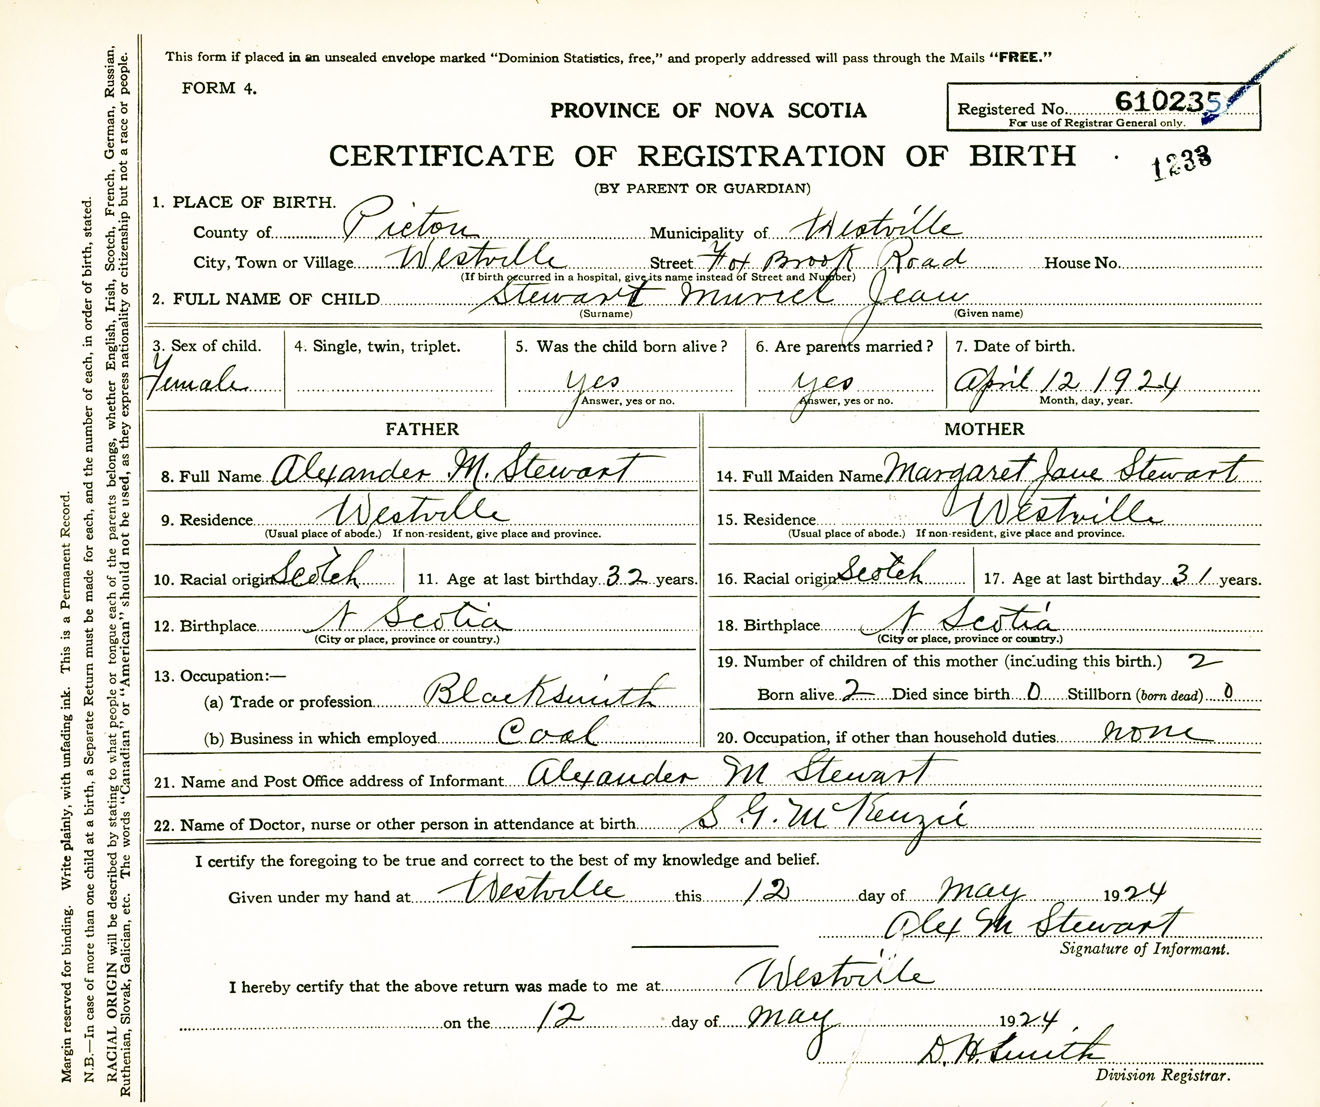 This form if placed in an unsealed envelope marked "Dominion Statistics, free," and properly addressed will pass through the Mails "FREE."
FORM 4.
PROVINCE OF NOVA SCOTIA
Registered No. 610235
For use of Registrar General only.
CERTIFICATE OF REGISTRATION OF BIRTH
1233
(BY PARENT OR GUARDIAN)
1. PLACE OF BIRTH.
County of Pictou Municipality of Westville
City, Town or Village Westville Street Fox Brook Road House No.
(If birth occurred in a hospital, give its name instead of Street and Number)
2. FULL NAME OF CHILD Stewart Muriel Jean
(Surname) (Given name)
3. Sex of child. 4. Single, twin, triplet. 5. Was the child born alive? 6. Are parents married? 7. Date of birth.
Female yes yes April 12 1924
Answer, yes or no. Answer, yes or no. Month, day, year.
FATHER MOTHER
8. Full Name Alexander M. Stewart 14. Full Maiden Name Margaret Jane Stewart
9. Residence Westville 15. Residence Westville
(Usual place of abode.) If non-resident, give place and province. (Usual place of abode.) If non-resident, give place and province.
10. Racial origin Scotch 11. Age at last birthday 32 years. 16. Racial origin Scotch 17. Age at last birthday 31 years.
12. Birthplace N Scotia 18. Birthplace N Scotia
(City or place, province or country.) (City or place, province or country.)
13. Occupation:— 19. Number of children of this mother (including this birth.) 2
(a) Trade or profession Blacksmith Born alive 2 Died since birth 0 Stillborn (born dead) 0
(b) Business in which employed Coal 20. Occupation, if other than household duties none
21. Name and Post Office address of Informant Alexander M Stewart
22. Name of Doctor, nurse or other person in attendance at birth S G. McKenzie
I certify the foregoing to be true and correct to the best of my knowledge and belief.
Given under my hand at Westville this 12 day of May 1924
Alex M Stewart
Signature of Informant.
I hereby certify that the above return was made to me at Westville
on the 12 day of May 1924
D. H. Smith
Division Registrar.
Margin reserved for binding. Write plainly, with unfading ink. This is a Permanent Record.
N.B.—In case of more than one child at a birth, a Separate Return must be made for each, and the number of each, in order of birth, stated.
RACIAL ORIGIN will be described by stating to what people or tongue each of the parents belongs, whether English, Irish, Scotch, French, German, Russian,
Ruthenian, Slovak, Galician, etc. The words "Canadian" or "American" should not be used, as they express nationality or citizenship but not a race or people.